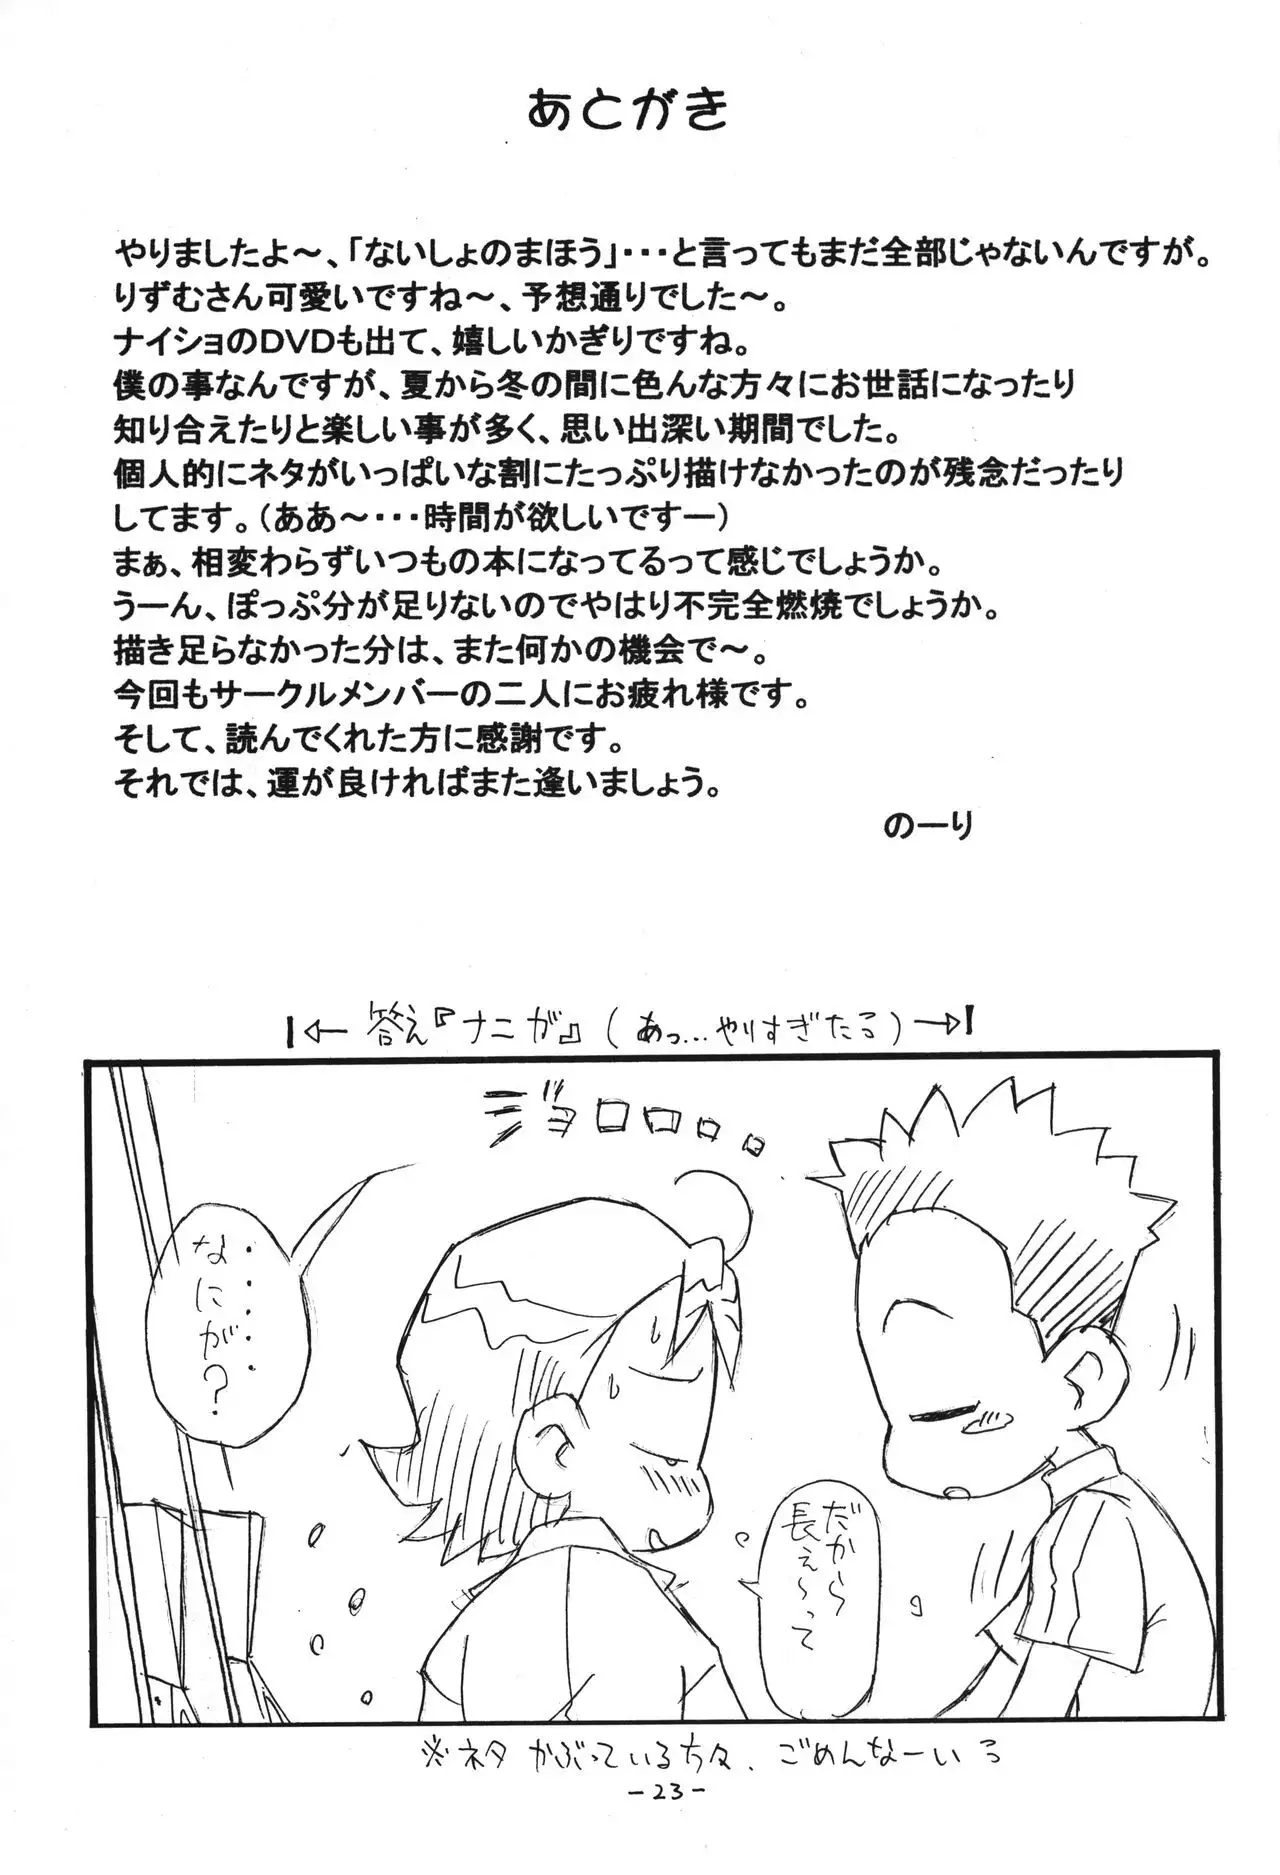 あとがき
やりましたよ～、「ないしょのまほう」・・・と言ってもまだ全部じゃないんですが。
りずむさん可愛いですね～、予想通りでした～。
ナイショのDVDも出て、嬉しいかぎりですね。
僕の事なんですが、夏から冬の間に色んな方々にお世話になったり
知り合えたりと楽しい事が多く、思い出深い期間でした。
個人的にネタがいっぱいな割にたっぷり描けなかったのが残念だったり
してます。（ああ～・・・時間が欲しいですー）
まぁ、相変わらずいつもの本になってるって感じでしょうか。
うーん、ぽっぷ分が足りないのでやはり不完全燃焼でしょうか。
描き足らなかった分は、また何かの機会で～。
今回もサークルメンバーの二人にお疲れ様です。
そして、読んでくれた方に感謝です。
それでは、運が良ければまた逢いましょう。
のーり
←答え『ナニが』（あっ…やりすぎたろ）→
ジョロロロ。。
・・・・・
なにが？
だから
長ぇ～って
※ネタかぶっている方々、ごめんなーいろ
-23-